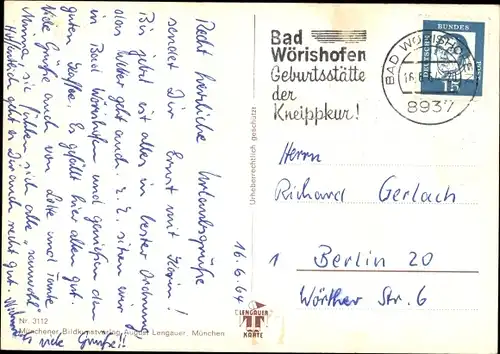 Recht herzliche Urlaubsgrüße
sendet Dir Ernst mit Karin!
Bis jetzt ist alles in bester Ordnung,
das Wetter geht auch. z. Z. sitzen wir
in Bad Wörishofen und genießen den
guten Kaffee. Es gefällt hier allen gut.
Viele Grüße auch von Lotte und Tante
Minna, sie fühlen sich alle "sauwohl"
Hoffentlich geht es Dir auch recht gut.
viele Grüße!!
16.6.64
Nr. 3112
Münchener Bildkunstverlag August Lengauer, München
Urheberrechtlich geschützt
LENGAUER
KARTE
Bad
Wörishofen
Geburtsstätte
der
Kneippkur!
BAD WÖRISHOFEN
16.6.
8937
DEUTSCHE
BUNDES
POST
15
Herrn
Richard Gerlach
1 Berlin 20
Wörther Str. 6